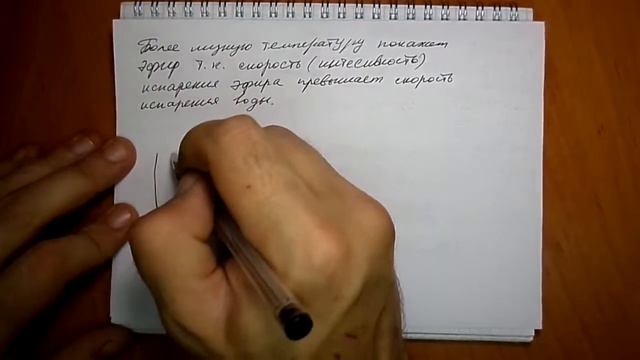 Более низкую температуру покажет
эфир т.к. скорость (интесивность)
испарения эфира превышает скорость
испарения воды.